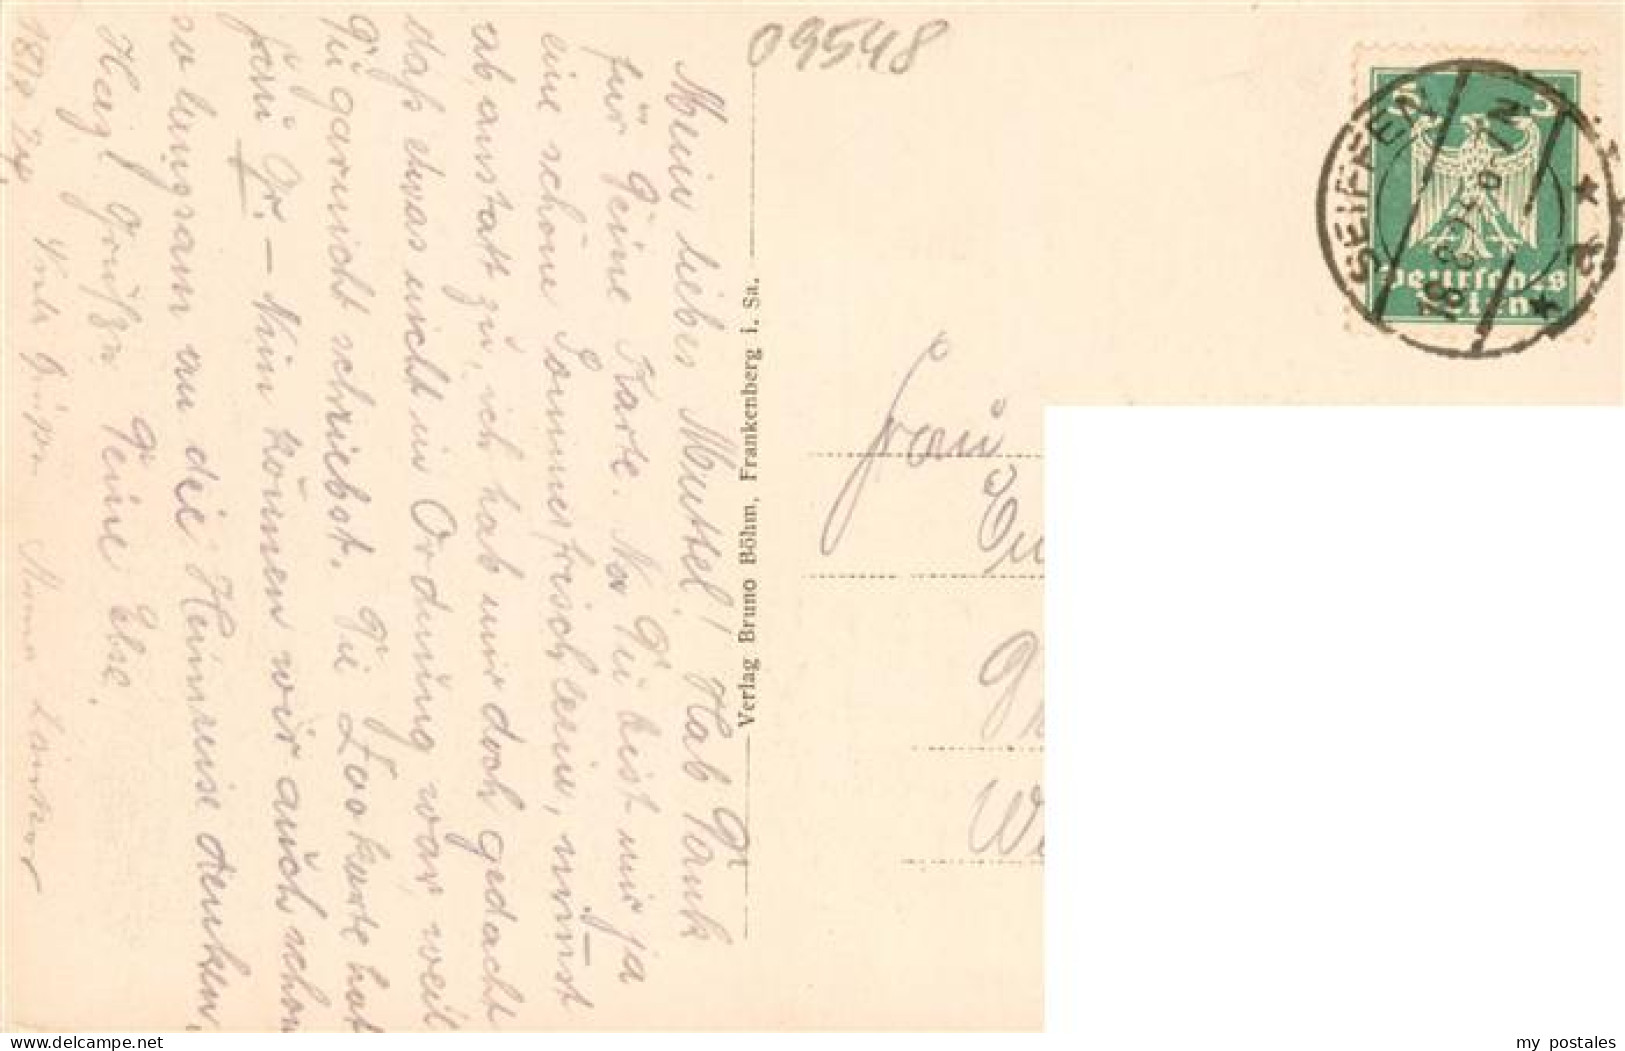 09548
Mein liebes Muttel! Hab Dank
für Deine Karte. Na Du bist mir ja
eine schöne Sommerfrischlerin, nimmst
ab anstatt zu, ich hab mir doch gedacht
daß etwas nicht in Ordnung war, weil
Du garnicht schriebst. Die Zookarte hat
Fräu Gr. – Nun können wir auch schon
so langsam an die Heimreise denken,
Herzl Grüßen Deine Else.
18.8.24.
Verlag Bruno Böhm, Frankenberg i. Sa.
Frau
SEIFFEN
18.8.24.
5
5
Deutsches
Reich
my postales